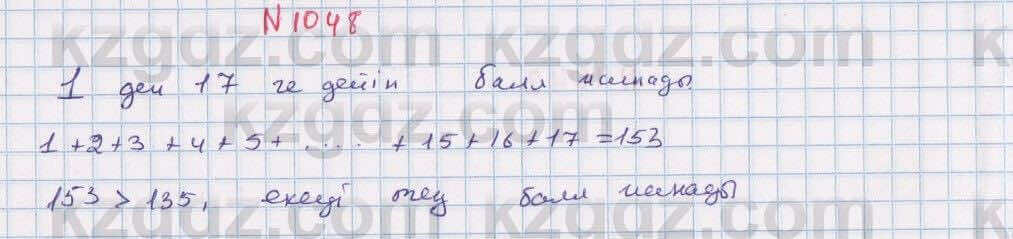 N 1048
1 ден 17 ге дейін балл жинады
1 + 2 + 3 + 4 + 5 + .... + 15 + 16 + 17 = 153
153 > 135, екеуі тең балл жинады
kzgdz.com
kzgdz.com